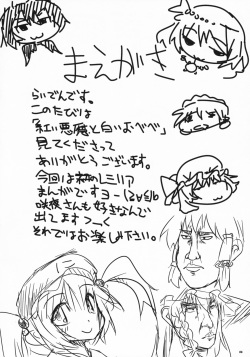 まえがき
らいでんです。
このたびは
「紅い悪魔と白いよべべ」
見てくださって
ありがとうございます。
今回は
レミリア
まんがですヨー
咲夜さんも好きなんで
出てますっ
それではお楽しみ下さい。